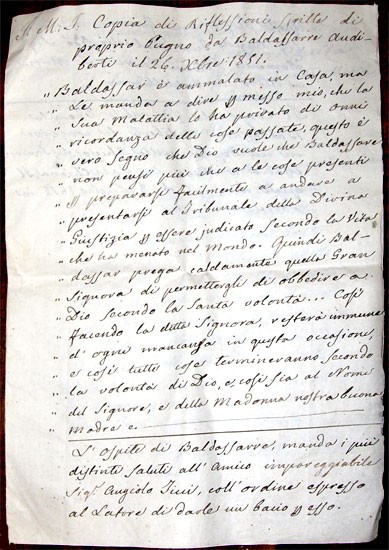 J. M. J. Copia di Riflessioni scritte di
proprio Pugno da Baldassarre Audi-
berti il 26. Xbre 1851.
„ Baldassar è ammalato in Casa, ma
„ Le manda a dire p messo mio, che la
„ Sua Malattia lo ha privato di onni
„ ricordanza delle cose passate, questo è
„ vero segno che Dio vuole che Baldassare
„ non pensi più che a le cose presenti
„ p prepararsi facilmente a andare a
„ presentarsi al Tribunale della Divina
„ Giustizia p essere judicato secondo la Vita
„ che ha menato nel Mondo. Quindi Bal-
„ dassar prega caldamente quella Gran
„ Signora di permettergli di obbedire a
„ Dio secondo la Santa volontà... Così
„ facendo la detta Signora, resterà immune
„ d' ogni mancanza in questa occasione,
„ e così tutte cose termineranno secondo
„ la volontà di Dio, e così sia al Nome
„ del Signore, e della Madonna nostra buona
„ Madre e
L' Ospite di Baldassarre, manda i più
distinti saluti all' Amico impareggiabile
Sigr. Angiolo coll' ordine espresso
al Latore di darle un bacio p esso.